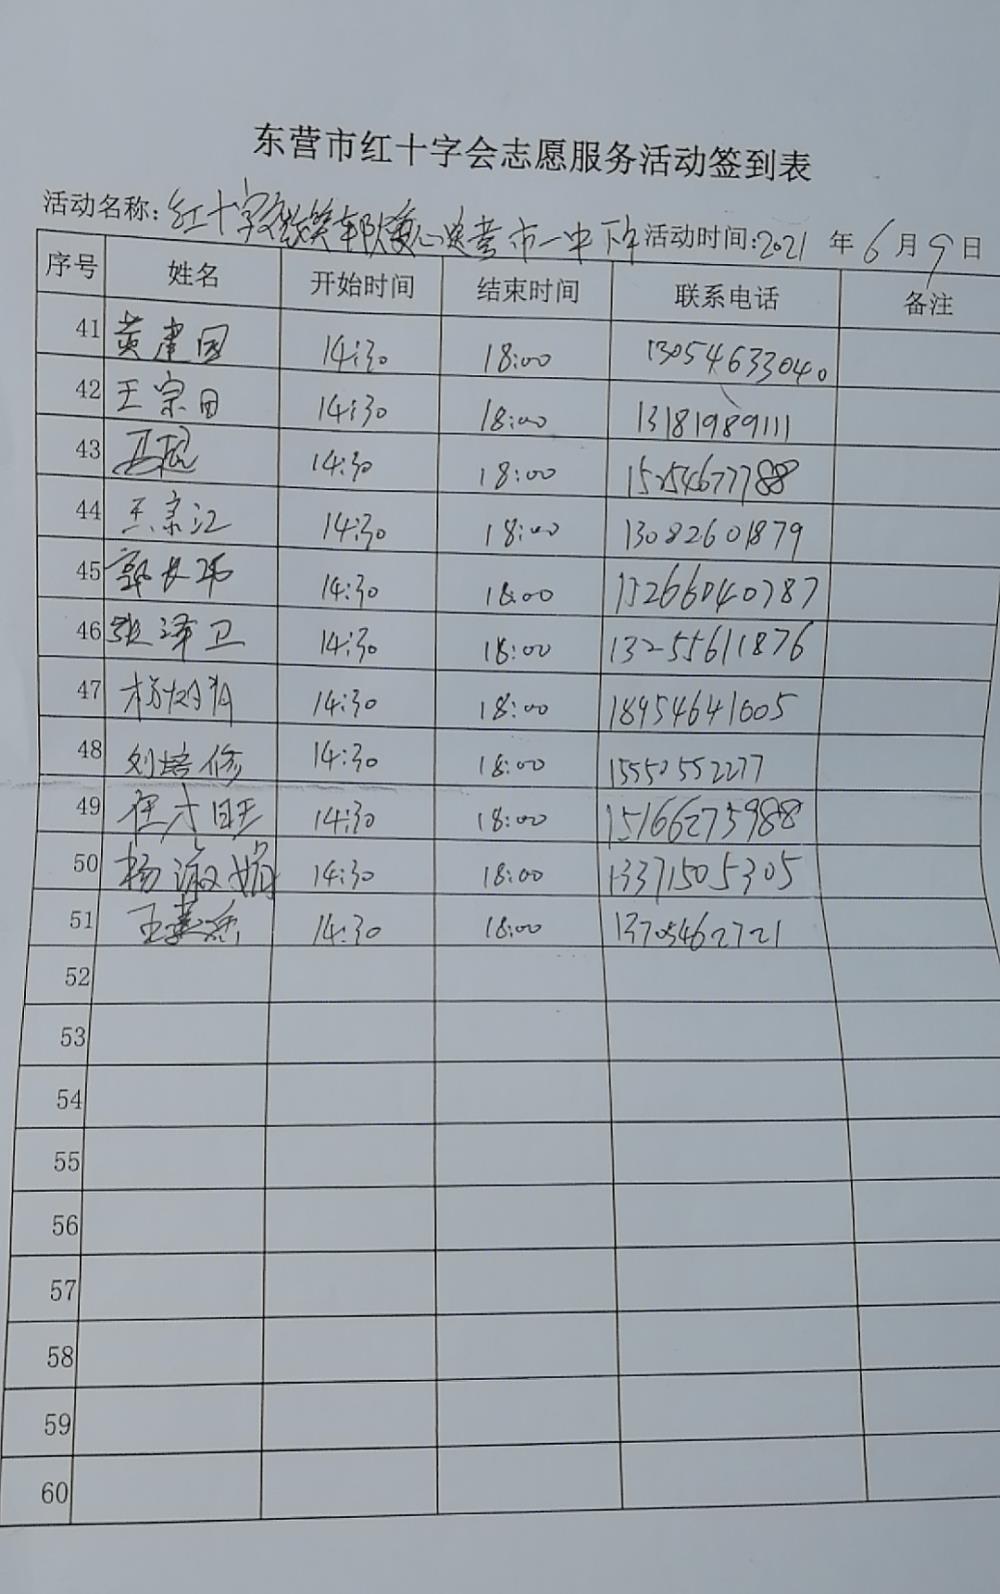 东营市红十字会志愿服务活动签到表
活动名称: 红十字 心 东营市一中下午 活动时间: 2021 年 6 月 9 日
序号 姓名 开始时间 结束时间 联系电话 备注
41 黄建国 14:30 18:00 13054633040
42 王宗田 14:30 18:00 13181989111
43 14:30 18:00 15254677788
44 王宗江 14:30 18:00 13082601879
45 郭长 14:30 18:00 15266040787
46 张泽卫 14:30 18:00 13255611876
47 杨 14:30 18:00 18954641005
48 刘培修 14:30 18:00 15552552277
49 任 旺 14:30 18:00 15166275988
50 杨淑娟 14:30 18:00 13371505305
51 王 14:30 18:00 13705462721
52
53
54
55
56
57
58
59
60